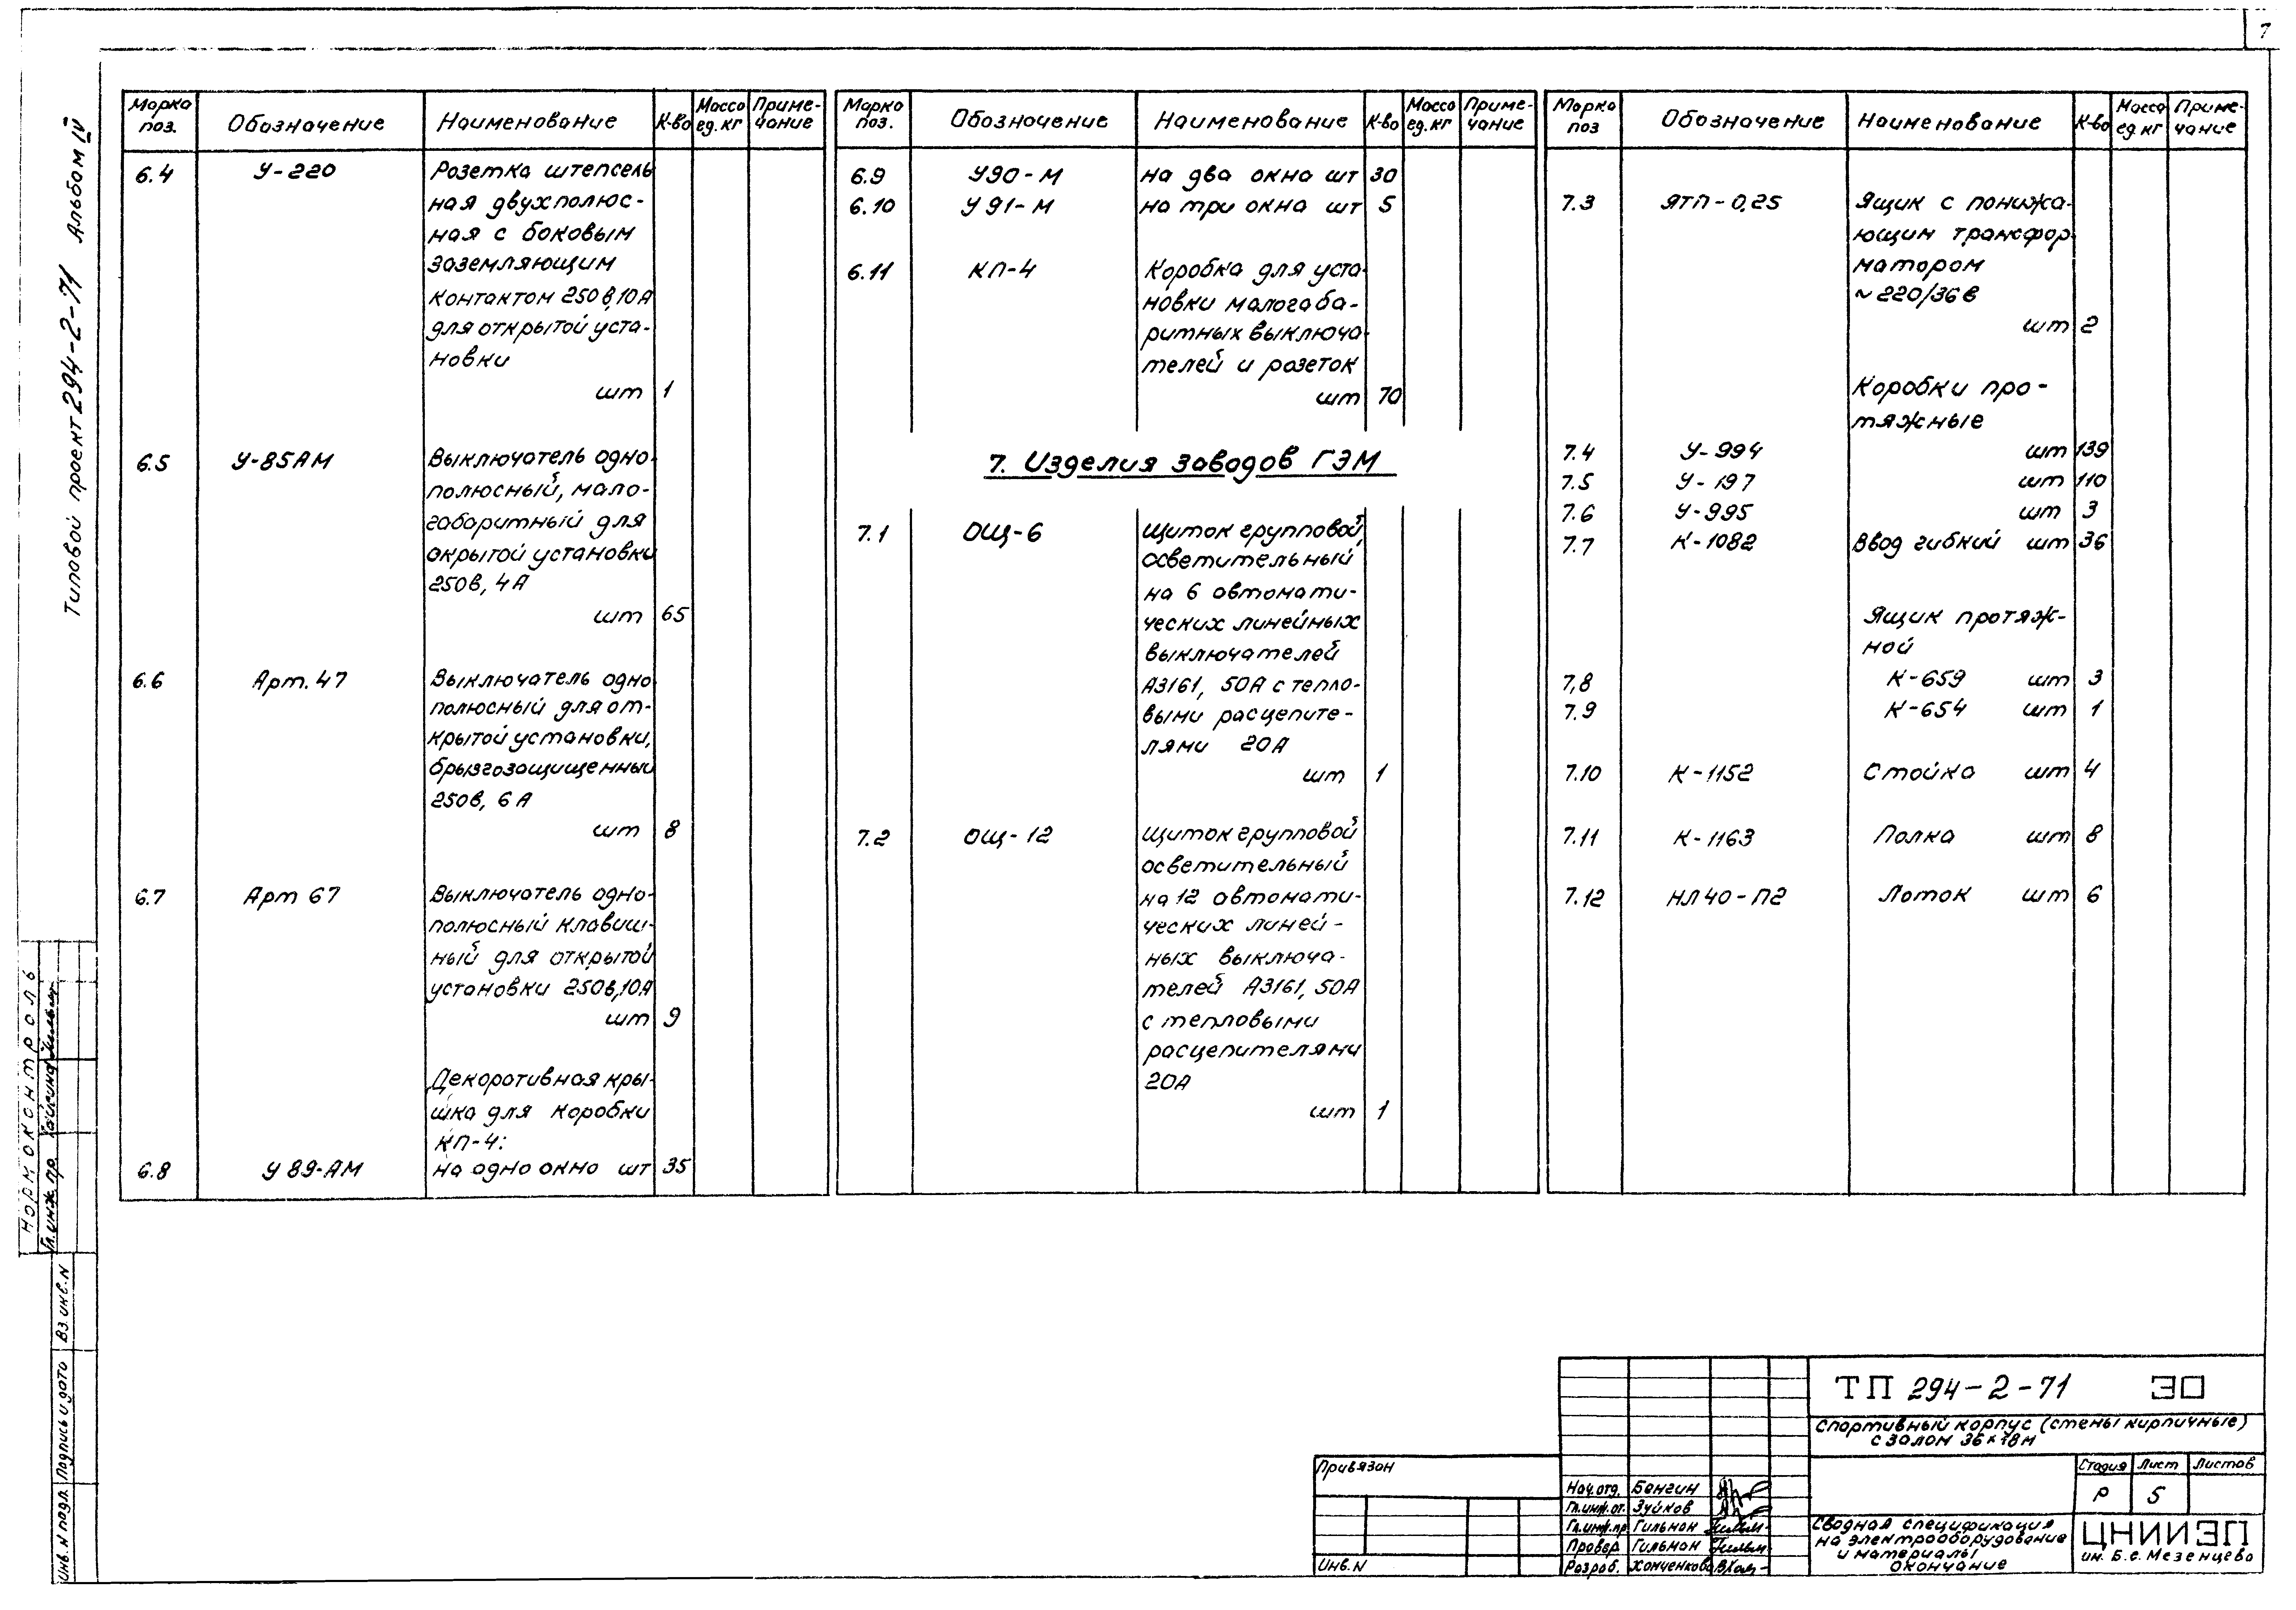 7
Типовой проект 294-2-71 Альбом IV
Марка поз. Обозначение Наименование К-во Масса ед. кг Приме-чание
6.4 У-220 Розетка штепсель
ная двухполюс-
ная с боковым
заземляющим
контактом 250в,10А
для открытой уста-
новки
шт 1
6.5 У-85АМ Выключатель одно
полюсный, мало-
габаритный для
окрытой установки
250в, 4А
шт 65
6.6 Арт. 47 Выключатель одно
полюсный для от-
крытой установки,
брызгозащищенный
250в, 6А
шт 8
6.7 Арт 67 Выключатель одно-
полюсный клавиш-
ный для открытой
установки 250в,10А
шт 9
Декоративная кры-
шка для коробки
КП-4:
6.8 У 89-АМ на одно окно шт 35
Марка поз. Обозначение Наименование К-во Масса ед. кг Приме-чание
6.9 У90-М на два окна шт 30
6.10 У 91-М на три окна шт 5
6.11 КП-4 Коробка для уста-
новки малогаба-
ритных выключа-
телей и розеток
шт 70
7. Изделия заводов ГЭМ
7.1 ОЩ-6 Щиток групповой,
осветительный
на 6 автомати-
ческих линейных
выключателей
А3161, 50А с тепло-
выми расцепите-
лями 20А
шт 1
7.2 ОЩ-12 Щиток групповой
осветительный
на 12 автомати-
ческих линей-
ных выключа-
телей А3161, 50А
с тепловыми
расцепителями
20А
шт 1
Марка поз Обозначение Наименование К-во Масса ед. кг Приме-чание
7.3 ЯТП-0,25 Ящик с понижа-
ющим трансфор
матором
~220/36в
шт 2
Коробки про-
тяжные
7.4 У-994 шт 139
7.5 У-197 шт 110
7.6 У-995 шт 3
7.7 К-1082 Ввод гибкий шт 36
Ящик протяж-
ной
7,8 К-659 шт 3
7.9 К-654 шт 1
7.10 К-1152 Стойка шт 4
7.11 К-1163 Полка шт 8
7.12 НЛ40-П2 Лоток шт 6
Нормоконтроль
Гл. инж. пр.
Вз. инв. N
Подпись и дата
Инв. N подл.
ТП 294-2-71 ЭО
Спортивный корпус (стены кирпичные)
с залом 36×18м
Привязан
Инв. N
Нач. отд. Бенгин
Гл. инж. от. Зуйков
Гл. инж. пр Гильман
Провер Гильман
Разраб. Хонченкова
Стадия Лист Листов
Р 5
Сводная спецификация
на электрооборудование
и материалы
Окончание
ЦНИИЭП
им. Б.С. Мезенцева